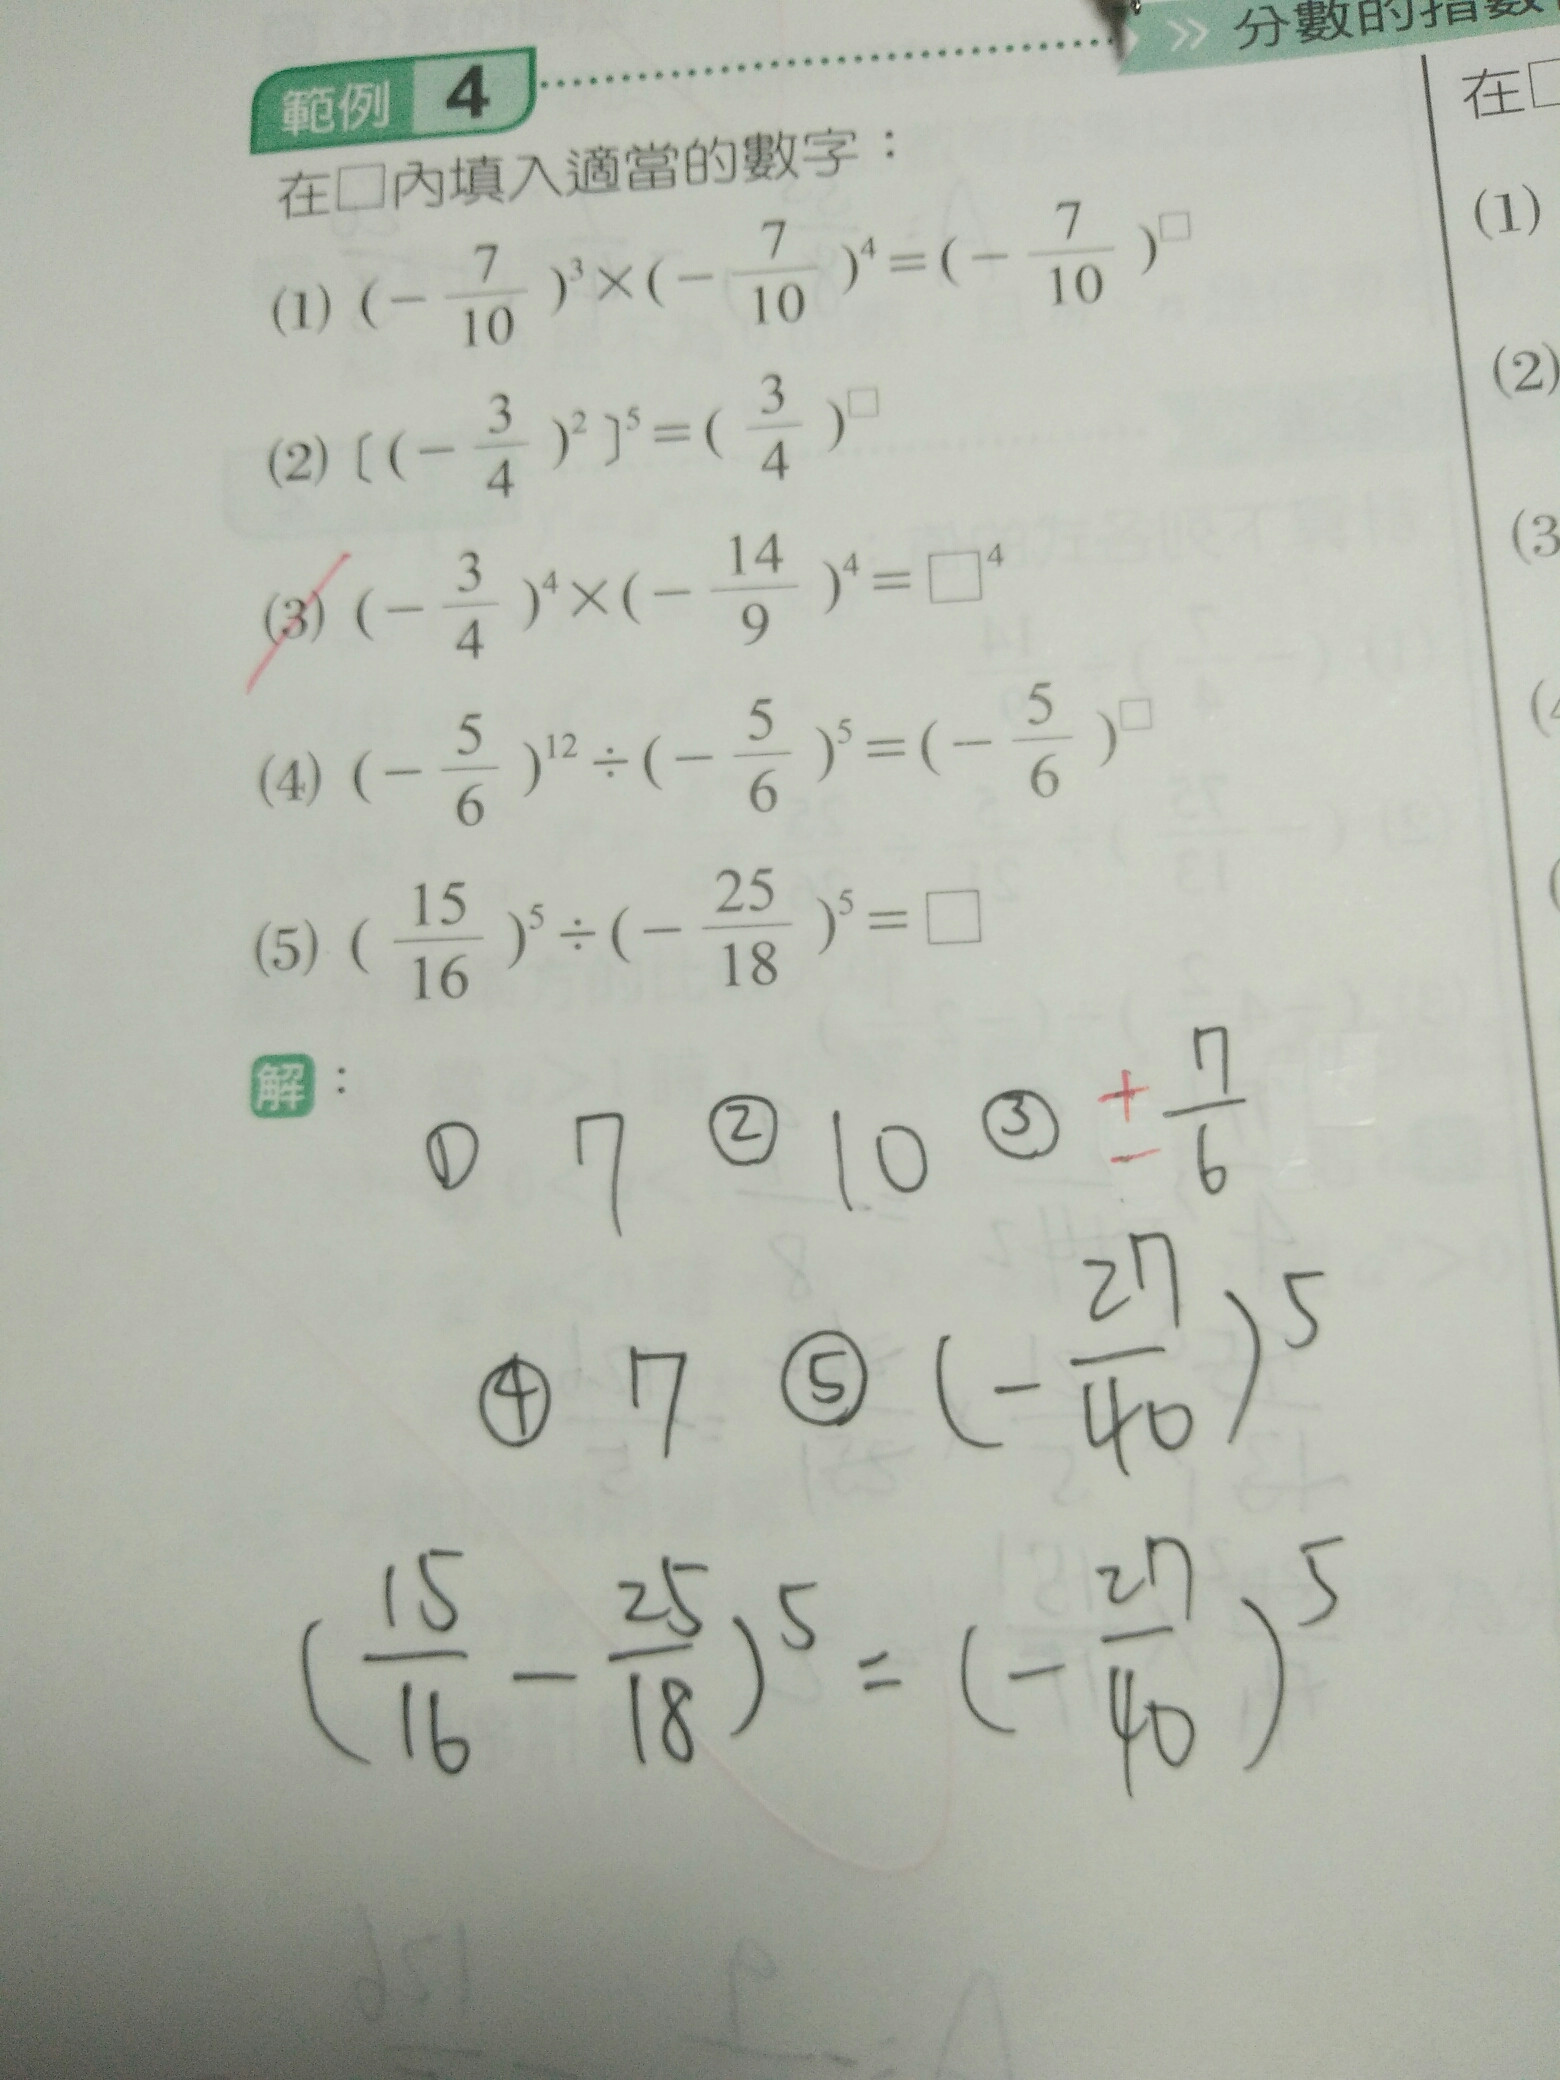 分數的指數
範例 4
在□內填入適當的數字：
(1) (－7/10)³×(－7/10)⁴＝(－7/10)^□
(2)〔(－3/4)²〕⁵＝(3/4)^□
(3) (－3/4)⁴×(－14/9)⁴＝□⁴
(4) (－5/6)¹²÷(－5/6)⁵＝(－5/6)^□
(5) (15/16)⁵÷(－25/18)⁵＝□
解：
① 7 ② 10 ③ ± 7/6
④ 7 ⑤ (－27/40)⁵
(15/16 － 25/18)⁵ = (－27/40)⁵
在□
(1)
(2)
(3